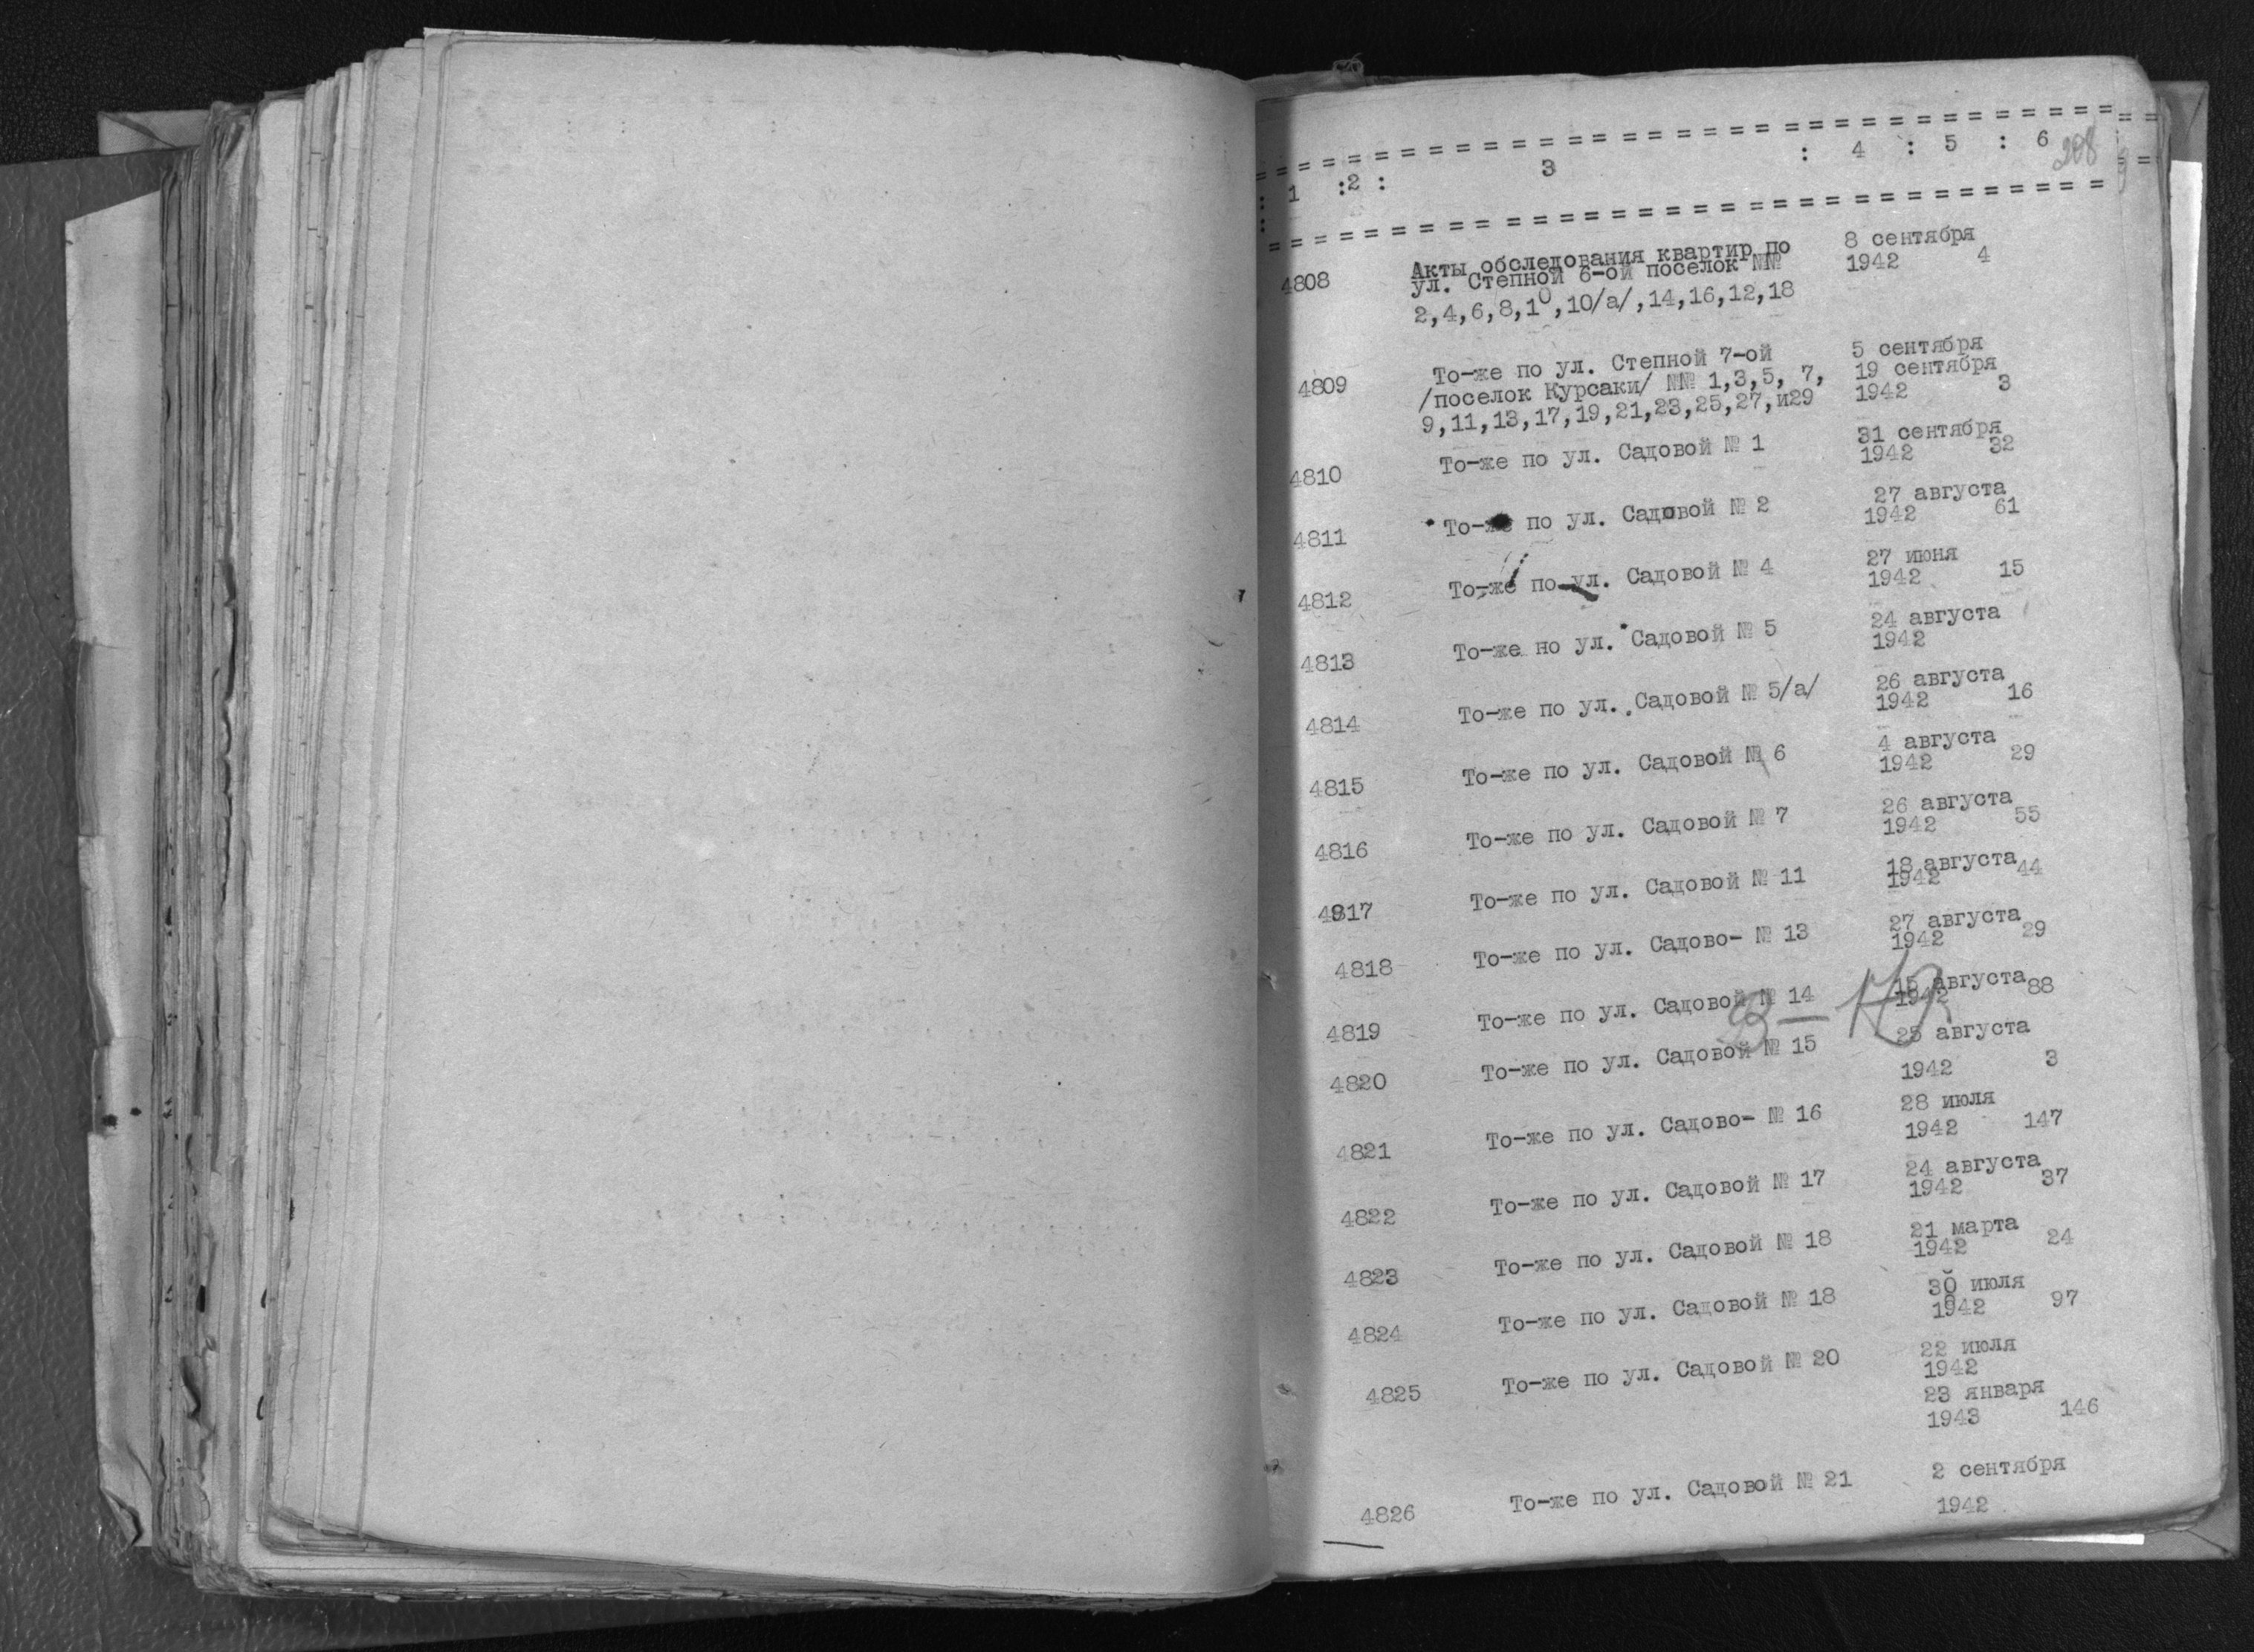 208
: 1 :2 : 3 : 4 : 5 : 6
4808 Акты обследования квартир по 8 сентября
ул. Степной 6-ой поселок №№ 1942 4
2,4,6,8,10,10/а/,14,16,12,18
4809 То-же по ул. Степной 7-ой 5 сентября
/поселок Курсаки/ №№ 1,3,5, 7, 19 сентября
9,11,13,17,19,21,23,25,27,и29 1942 3
4810 То-же по ул. Садовой № 1 31 сентября
1942 32
4811 То-же по ул. Садовой № 2 27 августа
1942 61
4812 То-же по ул. Садовой № 4 27 июня
1942 15
4813 То-же но ул. Садовой № 5 24 августа
1942
4814 То-же по ул. Садовой № 5/а/ 26 августа
1942 16
4815 То-же по ул. Садовой № 6 4 августа
1942 29
4816 То-же по ул. Садовой № 7 26 августа
1942 55
4817 То-же по ул. Садовой № 11 18 августа
1942 44
4818 То-же по ул. Садово- № 13 27 августа
1942 29
4819 То-же по ул. Садовой № 14 15 августа
1942 88
4820 То-же по ул. Садовой № 15 25 августа
1942 3
4821 То-же по ул. Садово- № 16 28 июля
1942 147
4822 То-же по ул. Садовой № 17 24 августа
1942 37
4823 То-же по ул. Садовой № 18 21 марта
1942 24
4824 То-же по ул. Садовой № 18 30 июля
1942 97
4825 То-же по ул. Садовой № 20 22 июля
1942
23 января
1943 146
4826 То-же по ул. Садовой № 21 2 сентября
1942